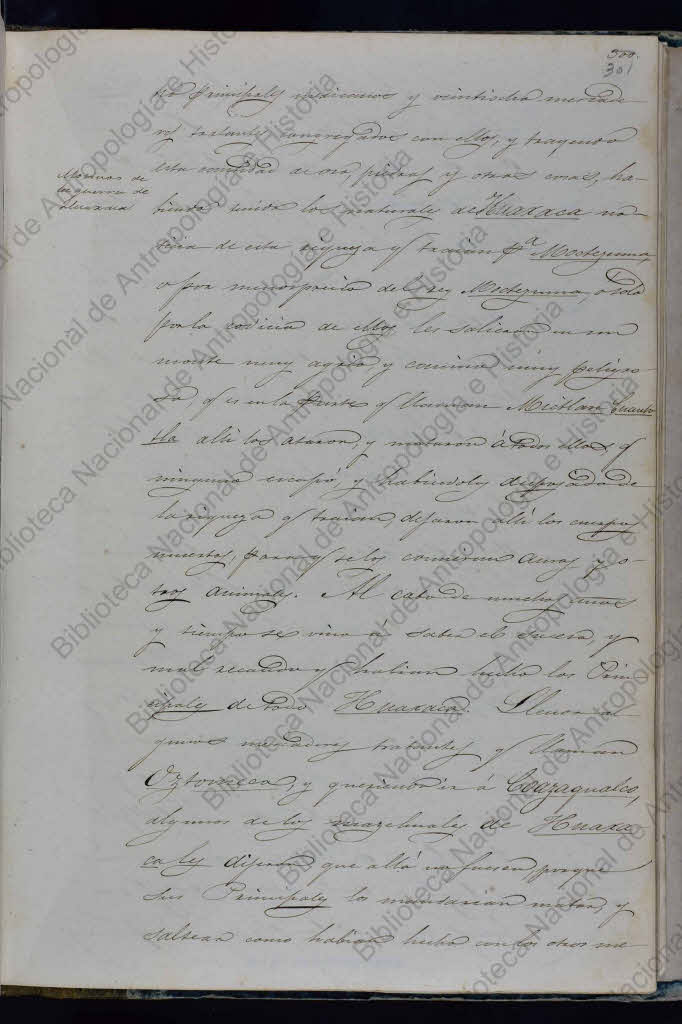 300.
301
tro Principales mexicanos y veintiocho mercade-
res tratantes congregados con ellos, y trayendo
esta cantidad de oro piedras y otras cosas, ha-
Motivos de
la guerra de
Huaxaca
biendo tenido los naturales de Huaxaca no-
ticia de esta riqueza q traian pa Moctezuma,
o por menosprecio del rey Moctezuma, o solo
por la codicia de ellos les salieron en un
monte muy agrio y camino muy peligro-
so q es en la parte q llaman Mictlan Cuauh-
tla alli los ataron, y mataron á todos ellos q
ninguno escapó, y habiendoles despojado de
la riqueza q traian, dejaron alli los cuerpos
muertos, para q se los comieran auras y o-
tros animales. Al cabo de muchos
y tiempo se vino á saber el suceso, y
mal recaudo q habian hecho los Prin-
cipales de todo Huaxaca. Llevan al-
gunos mercaderes tratantes q llaman
Oztomeca, y queriendo ir á Coazaqualco,
algunos de los mazehuales de Huaxa-
ca les dijeron que allá no fuesen, porque
sus Principales los mandarian matar, y
saltear como habian hecho con los otros me-
Biblioteca Nacional de Antropología e Historia